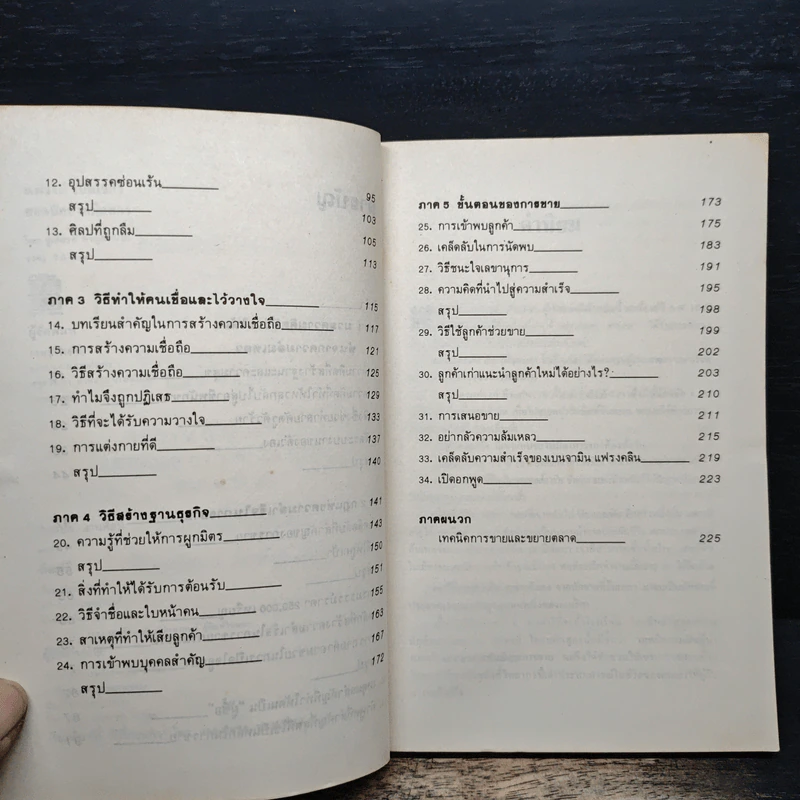 12. อุปสรรคซ่อนเร้น 95
สรุป 103
13. ศิลปที่ถูกลืม 105
สรุป 113
ภาค 3 วิธีทำให้คนเชื่อและไว้วางใจ 115
14. บทเรียนสำคัญในการสร้างความเชื่อถือ 117
15. การสร้างความเชื่อถือ 121
16. วิธีสร้างความเชื่อถือ 125
17. ทำไมจึงถูกปฏิเสธ 129
18. วิธีที่จะได้รับความวางใจ 133
19. การแต่งกายที่ดี 137
สรุป 140
ภาค 4 วิธีสร้างฐานธุรกิจ 141
20. ความรู้ที่ช่วยให้การผูกมิตร 143
สรุป 150
21. สิ่งที่ทำให้ได้รับการต้อนรับ 151
22. วิธีจำชื่อและใบหน้าคน 155
23. สาเหตุที่ทำให้เสียลูกค้า 163
24. การเข้าพบบุคคลสำคัญ 167
สรุป 172
ภาค 5 ขั้นตอนของการขาย 173
25. การเข้าพบลูกค้า 175
26. เคล็ดลับในการนัดพบ 183
27. วิธีชนะใจเลขานุการ 191
28. ความคิดที่นำไปสู่ความสำเร็จ 195
สรุป 198
29. วิธีใช้ลูกค้าช่วยขาย 199
สรุป 202
30. ลูกค้าเก่าแนะนำลูกค้าใหม่ได้อย่างไร? 203
สรุป 210
31. การเสนอขาย 211
32. อย่ากลัวความล้มเหลว 215
33. เคล็ดลับความสำเร็จของเบนจามิน แฟรงคลิน 219
34. เปิดอกพูด 223
ภาคผนวก
เทคนิคการขายและขยายตลาด 225